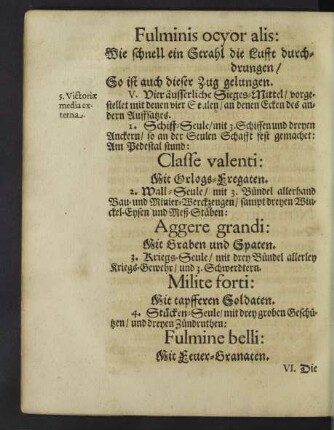 Fulminis ocyor alis:
Wie schnell ein Strahl die Luffte durch-
drungen/
So ist auch dieser Zug gelungen.
5. Victoriæ
media ex-
terna.
V. Vier äusserliche Sieges-Mittel/ vorge-
stellet mit denen vier Seulen/ an denen Ecken des an-
dern Auffsatzes.
1. Schiff-Seule/ mit 3. Schiffen und dreyen
Anckern/ so an der Seulen Schafft fest gemachet:
Am Pedestal stund:
Classe valenti:
Mit Orlogs-Fregaten.
2. Wall-Seule/ mit 3. Bündel allerhand
Bau- und Minier-Werckzeugen/ sampt dreyen Win-
ckel-Eysen und Meß-Stäben:
Aggere grandi:
Mit Graben und Spaten.
3. Kriegs-Seule/ mit drey Bündel allerley
Kriegs-Gewehr/ und 3. Schwerdtern.
Milite forti:
Mit tapfferen Soldaten.
4. Stücken-Seule/ mit drey groben Geschü-
tzen/ und dreyen Zündruthen:
Fulmine belli:
Mit Feuer-Granaten.
VI. Die